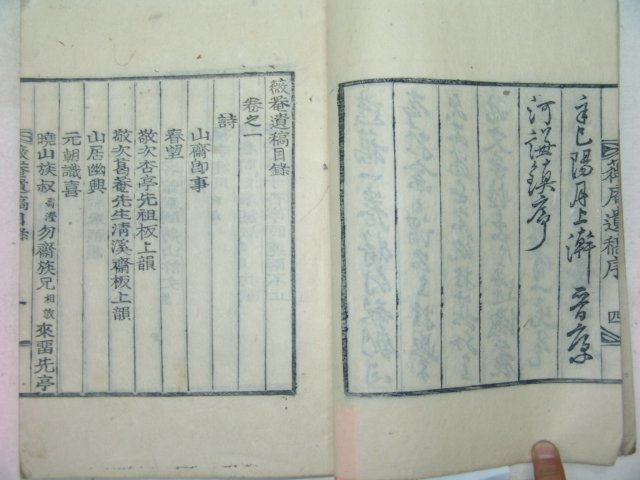 辛巳陽月上澣 晋康
河謙鎮序
薇庵遺稿序 四
薇菴遺稿目錄
卷之一
詩
山齋卽事
春望
敬次杏亭先祖板上韻
敬次葛菴先生清溪齋板上韻
山居幽興
元朝識喜
曉山族叔 勿齋族兄 相敦 來留先亭
薇菴遺稿目錄 一